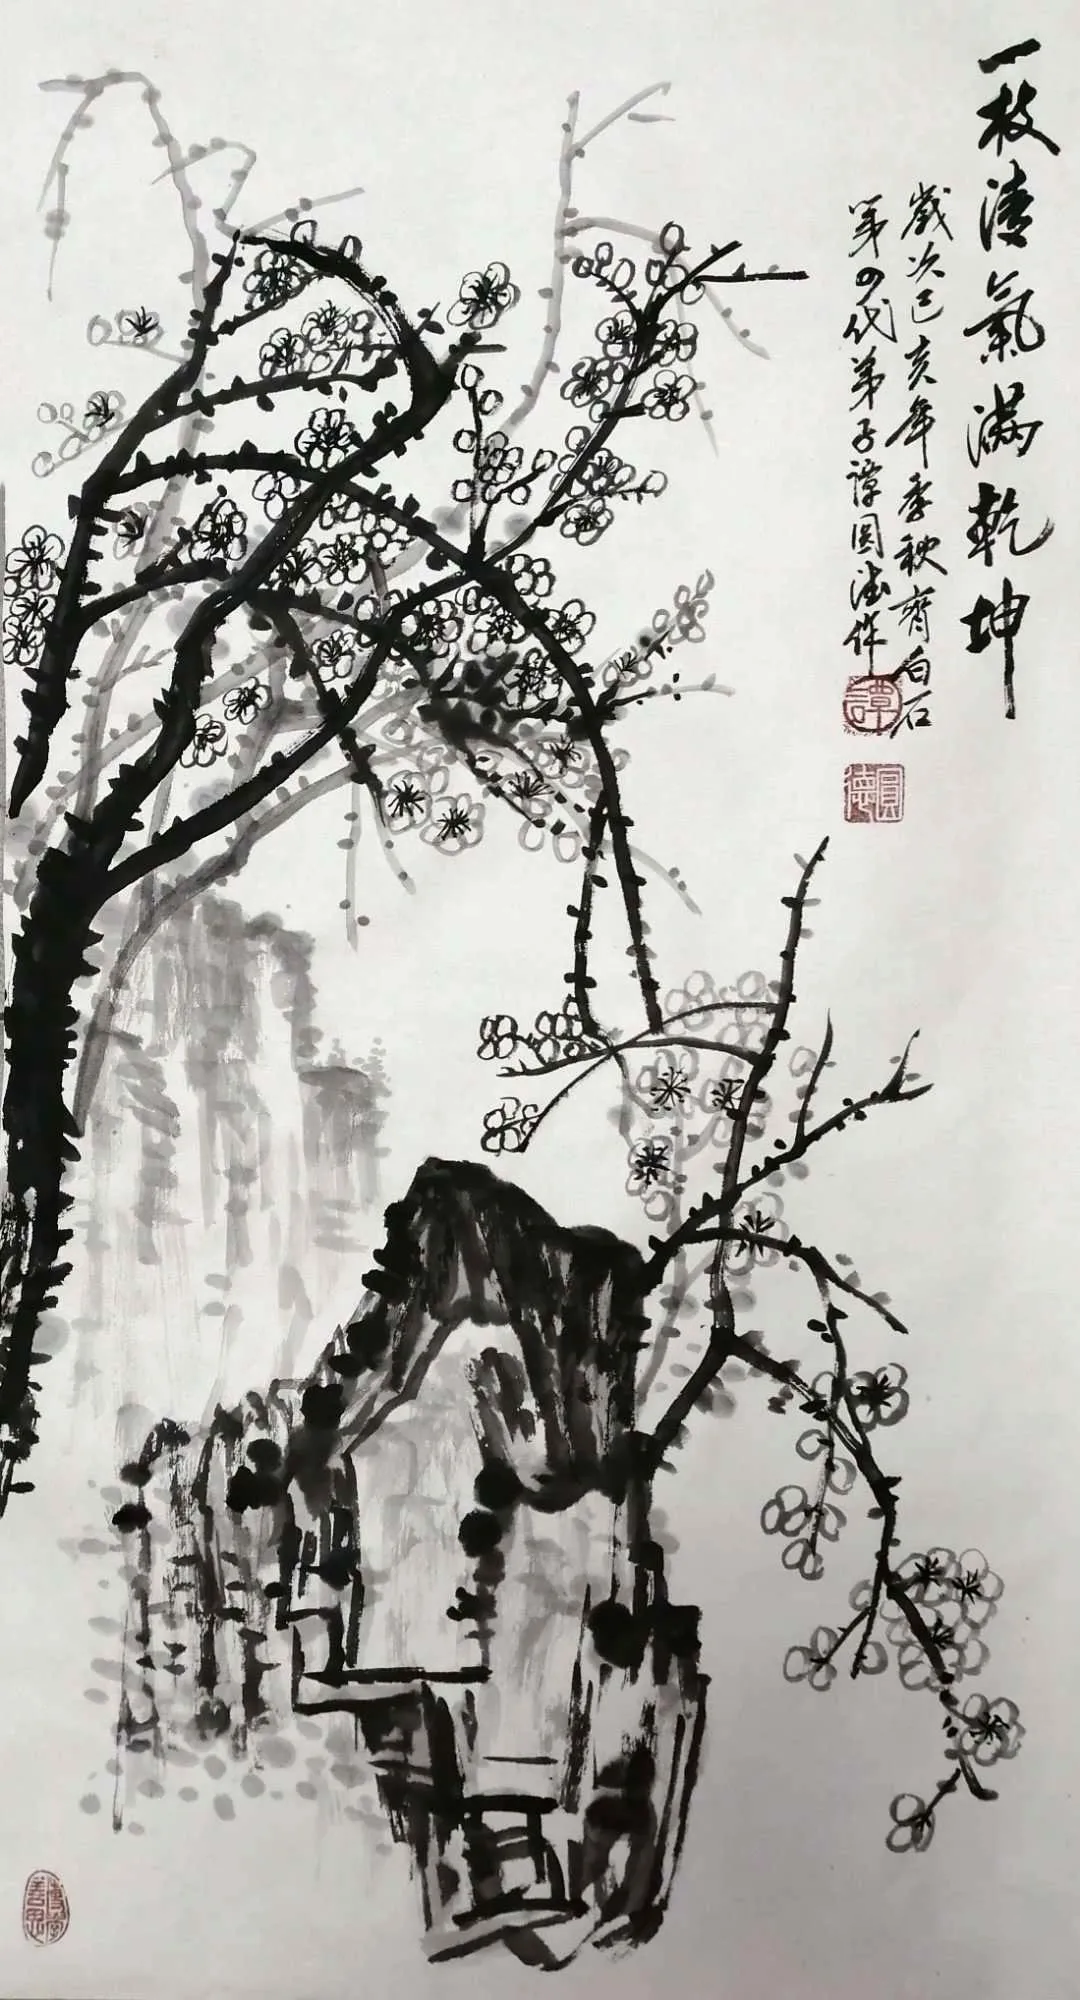 一枝清氣滿乾坤
歲次己亥年季秋齊白石
第四代弟子譚圓德作
譚
圓德